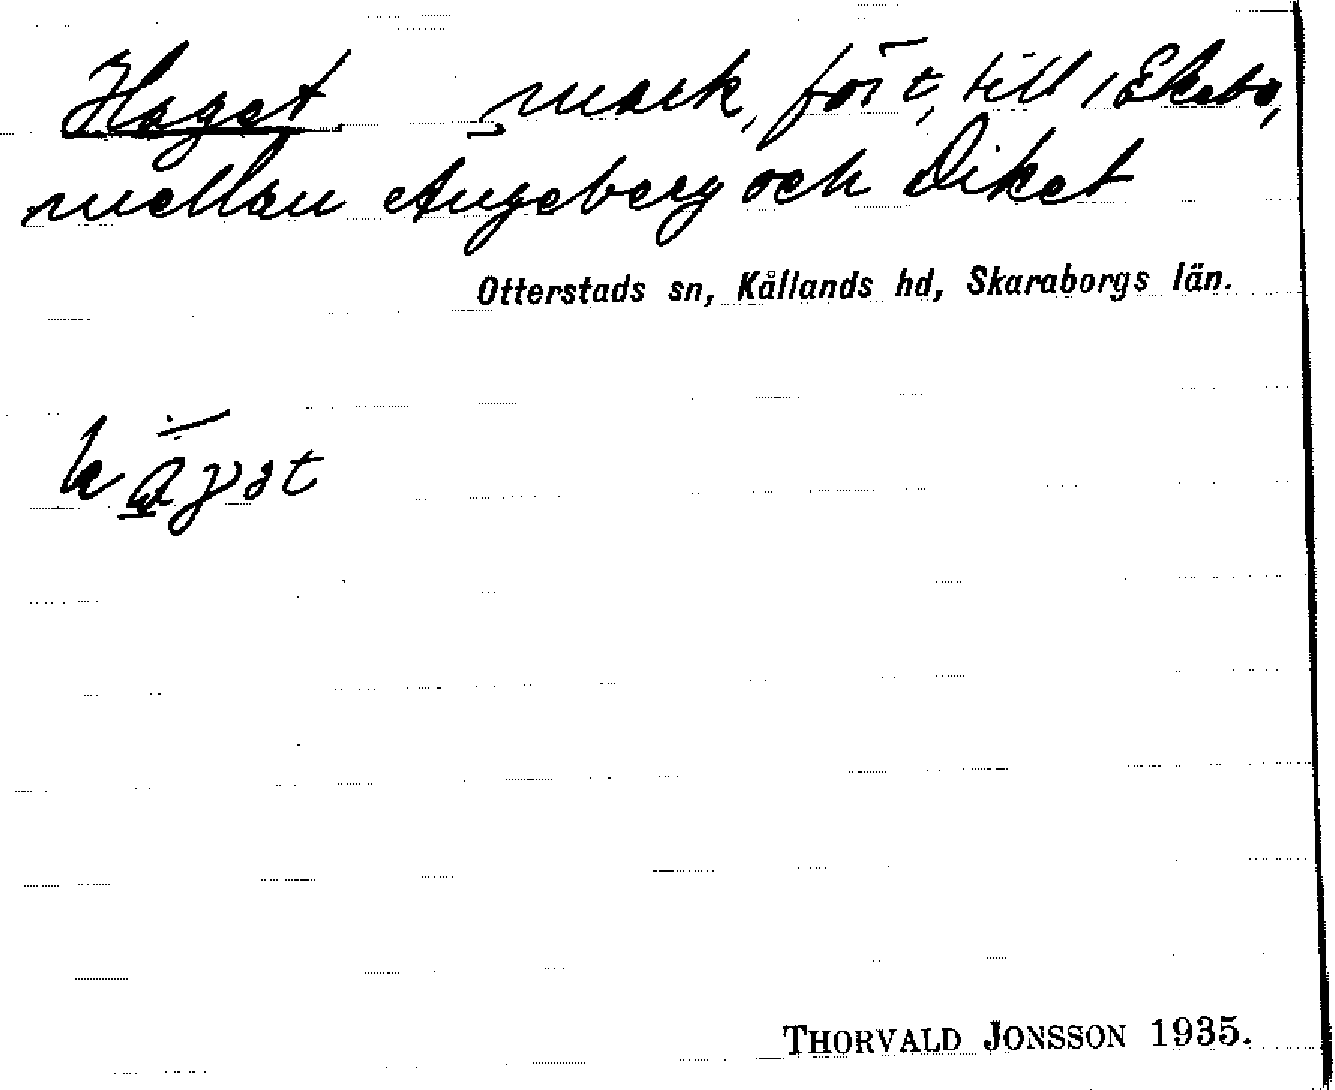 Haget mark, för t, till 1 Ekebo,
mellan Ängeberg och Diket
Otterstads sn, Kållands hd, Skaraborgs län.
THORVALD JONSSON 1935.